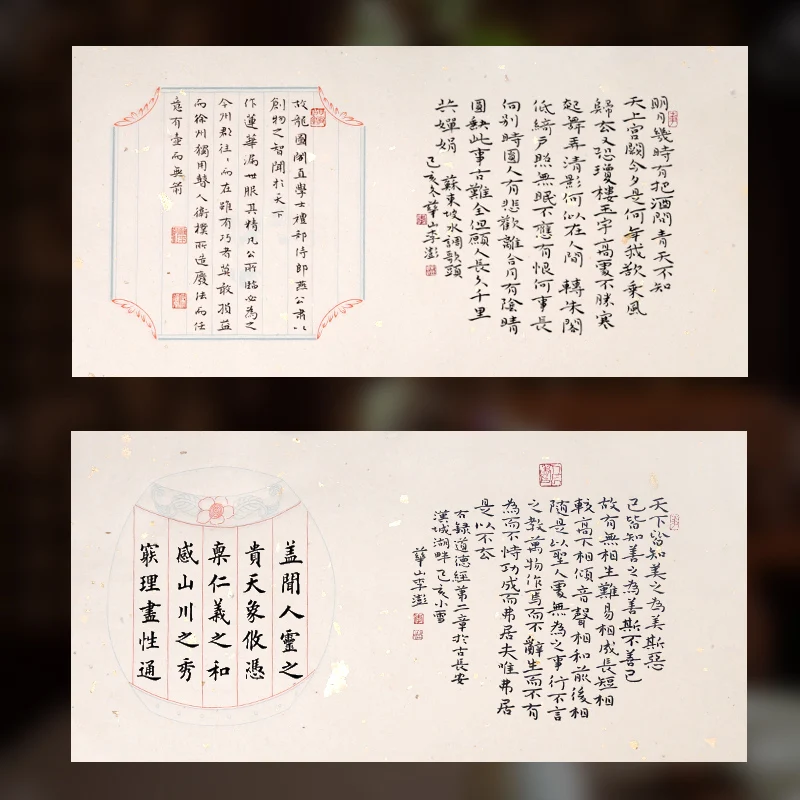 明月幾時有把酒問青天不知
天上宮闕今夕是何年我欲乘風
歸去又恐瓊樓玉宇高處不勝寒
起舞弄清影何似在人間 轉朱閣
低綺戶照無眠不應有恨何事長
向別時圓人有悲歡離合月有陰晴
圓缺此事古難全但願人長久千里
共嬋娟 蘇東坡水調歌頭
己亥冬華山李澎
故龍圖閣直學士禮部侍郎燕公肅以
創物之智聞於天下
作蓮華漏世服其精凡公所臨必為之
今州郡往々而在雖有巧者莫敢損益
而徐州獨用瞽人衛樸所造廢法而任
意有壺而無箭
天下皆知美之為美斯惡
已皆知善之為善斯不善已
故有無相生難易相成長短相
較高下相傾音聲相和前後相
隨是以聖人處無為之事行不言
之教萬物作焉而不辭生而不有
為而不恃功成而弗居夫唯弗居
是以不去
右錄道德經第二章於古長安
漢城湖畔己亥小雪
華山李澎
盖聞人靈之
貴天象攸憑
稟仁義之和
感山川之秀
窮理盡性通